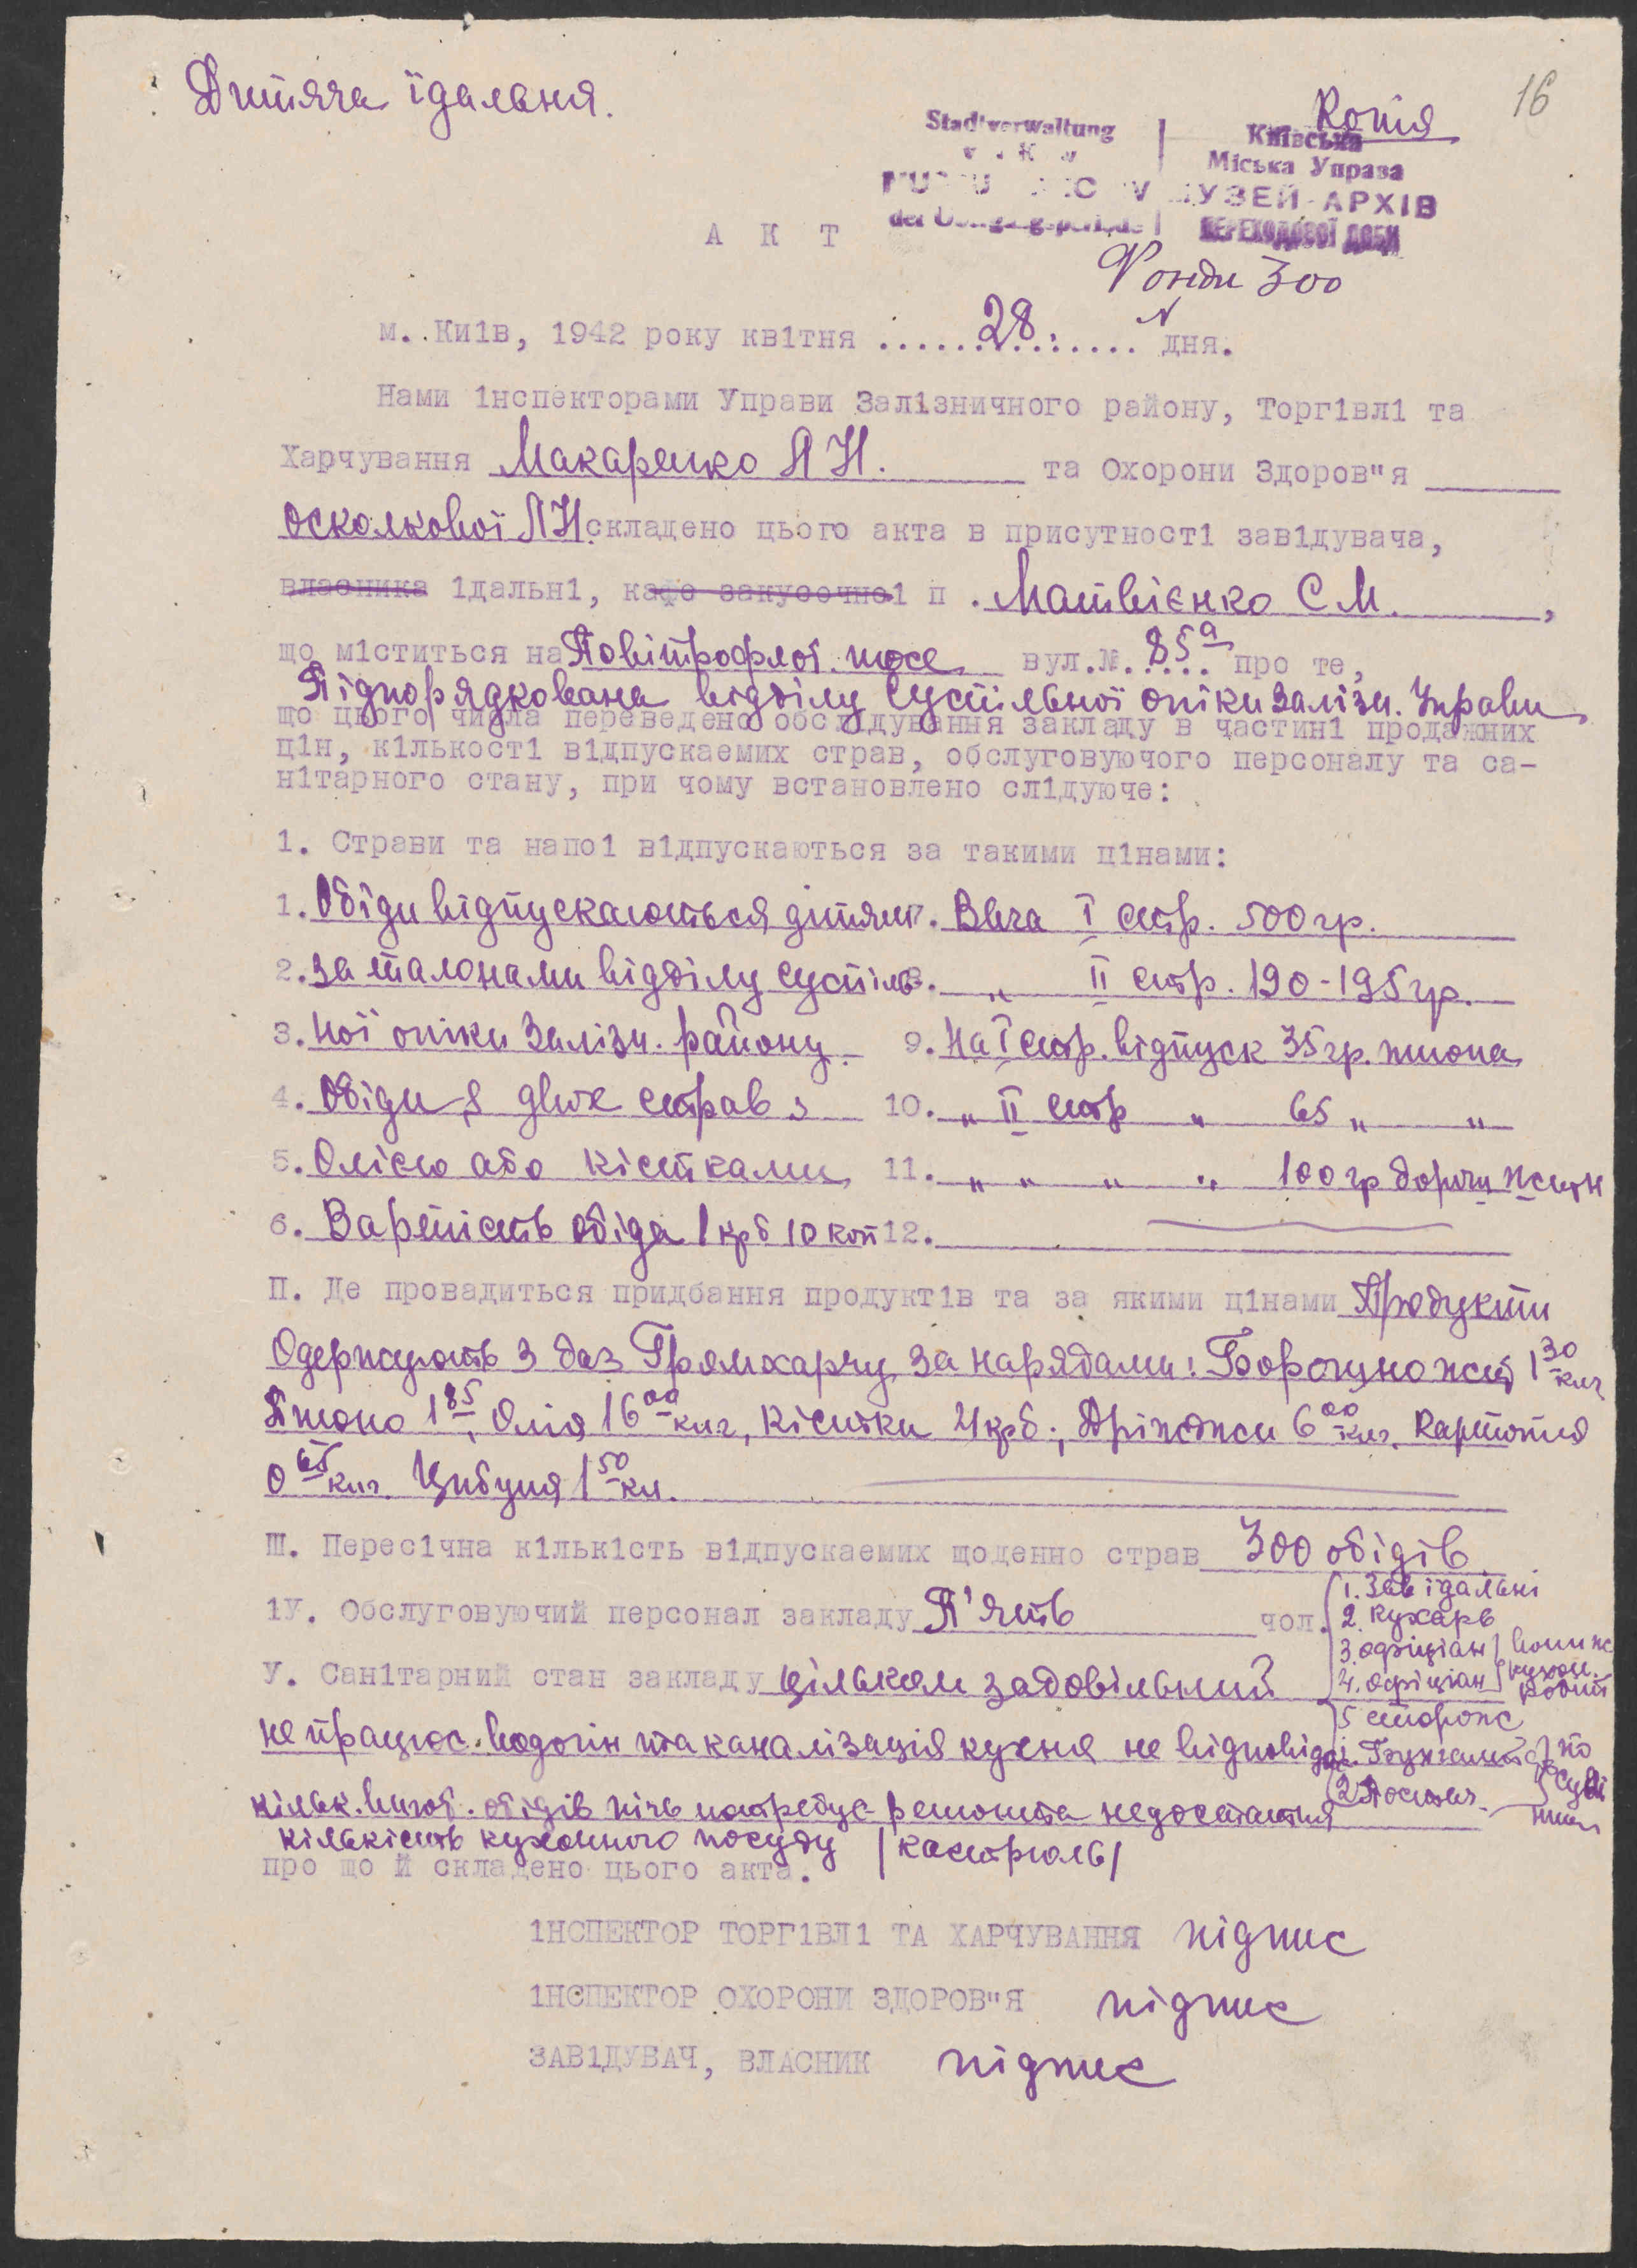 Дитяча їдальня.
Копія
16
Stadtverwaltung
Київська
Міська Управа
МУЗЕЙ-АРХІВ
ПЕРЕХОДОВОЇ ДОБИ
А К Т
Фонди 300
м. Ки1в, 1942 року кв1тня ......28...... дня.
Нами 1нспекторами Управи Зал1зничного району, Торг1вл1 та
Харчування Макаренко Я Н. та Охорони Здоров"я
Осколкової Л Н складено цього акта в присутност1 зав1дувача,
власника 1дальн1, кафе закусочно1 п. Матвієнко С М.,
що м1ститься на Повітрофлот. шосе вул.№. 85а про те,
Підпорядкована відділу суспільної опіки Залізн. Управи
що цього числа переведено обсл1дування закладу в частин1 продажних
ц1н, к1лькост1 в1дпускаемих страв, обслуговуючого персоналу та са-
н1тарного стану, при чому встановлено сл1дуюче:
1. Страви та напо1 в1дпускаються за такими ц1нами:
1. Обіди відпускаються дітям. Вага І стр. 500 гр.
2. за талонами відділу суспіль-. „ ІІ стр. 190-195 гр.
3. ної опіки Залізн. району 9. На І стр. відпуск 35 гр. пшона
4. Обіди з двох страв з 10. „ ІІ стр „ 65 „ „
5. Олією або кістками 11. „ „ „ „ 100 гр борош житн
6. Вартість обіда 1 крб 10 коп 12.
П. Де провадиться придбання продукт1в та за якими ц1нами Продукти
Одержують з баз Громхарчу за нарядами: Борошно жит 1 30 клг
Пшоно 1 85, Олія 16 00 клг, кістки 4 крб., Дріжджи 6 00 клг. Картопля
0 65 клг. Цибуля 1 50 кл.
Ш. Перес1чна к1льк1сть в1дпускаемих щоденно страв 300 обідів
1У. Обслуговуючий персонал закладу П'ять чол.
1. Зав їдальні
2. кухарь
3. офіціан
4. офіціан
5 сторож
У. Сан1тарний стан закладу цілком задовільний
не працює водогін та каналізація кухня не відповідає
кільк. вигот. обідів піч потребує ремонта недостатня
кількість кухонного посуду /кастрюль/
про що й складено цього акта.
1НСПЕКТОР ТОРГ1ВЛ1 ТА ХАРЧУВАННЯ підпис
1НСПЕКТОР ОХОРОНИ ЗДОРОВ"Я підпис
ЗАВ1ДУВАЧ, ВЛАСНИК підпис